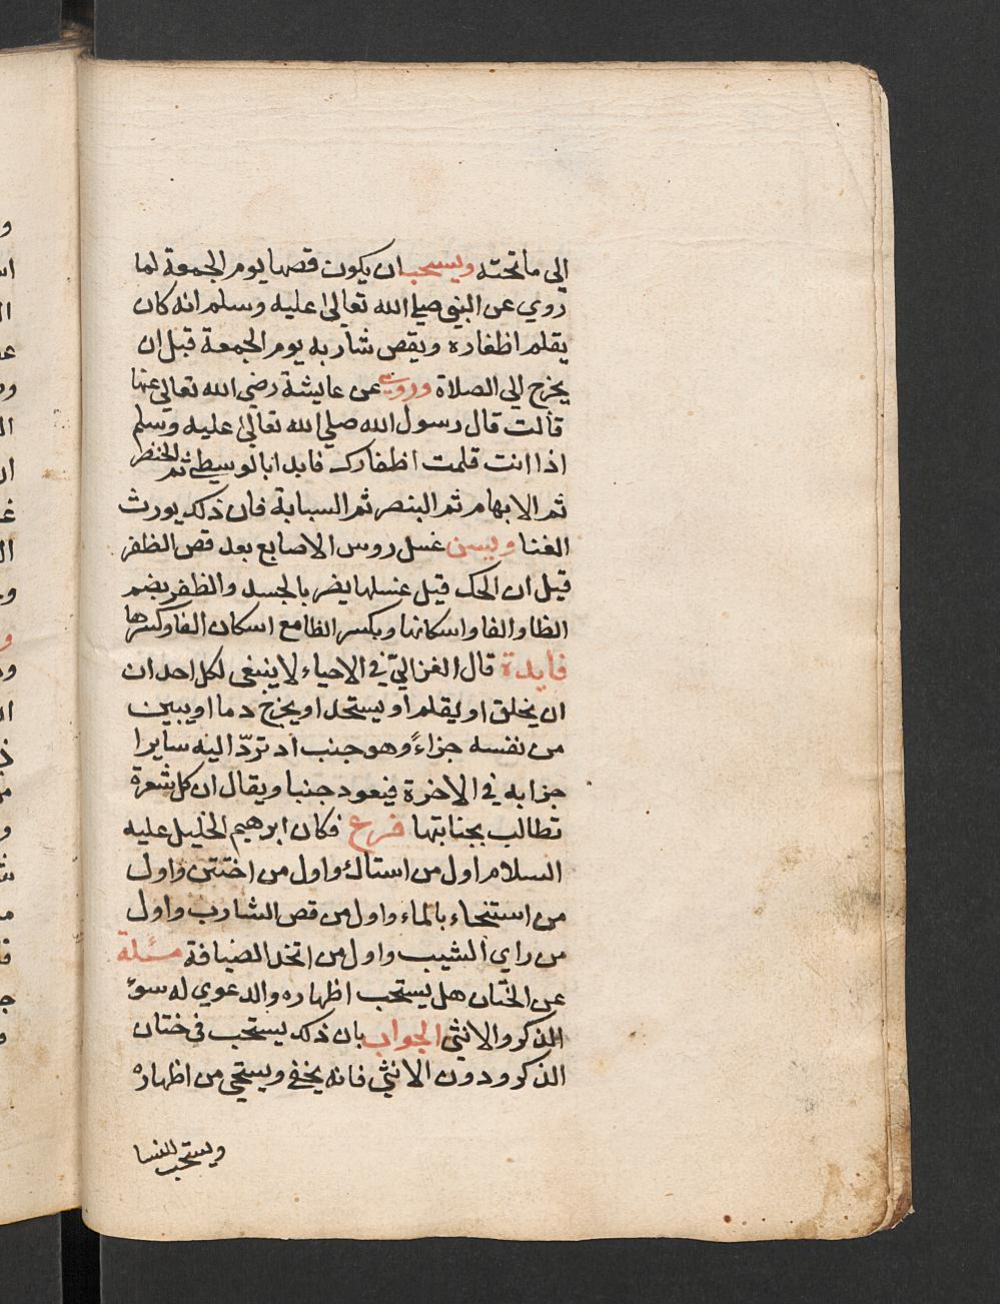 الي ما تحته ويستحب ان يكون قصها يوم الجمعة لما
روي عن النبي صلي الله تعالي عليه وسلم انه كان
يقلم اظفاره ويقص شاربه يوم الجمعة قبل ان
يخرج الي الصلاة وروي عن عايشة رضي الله تعالي عنها
قالت قال رسول الله صلي الله تعالي عليه وسلم
اذا انت قلمت اظفارك فابدا بالوسطي ثم الخنصر
ثم الابهام ثم البنصر ثم السبابة فان ذلك يورث
الغنا ويسن غسل روس الاصابع بعد قص الظفر
قيل ان الحك قيل غسلها يضر بالجسد والظفر بضم
الظا والفا واسكانها وبكسر الظا مع اسكان الفا وكسرها
فايدة قال الغزالي في الاحياء لا ينبغي لكل احد ان
ان يحلق او يقلم او يستحد او يخرج دما او يبين
من نفسه جزاءً وهو جنب اد تردّ اليه سايرا
جزابه في الاخرة فيعود جنبا ويقال ان كل شعرة
تطالب بجنابتها فرع فكان ابرهيم الخليل عليه
السلام اول من استاك واول من اختتن واول
من استنجاء بالماء واول من قص الشارب واول
من راي الشيب واول من اتخد الضيافة مسئلة
عن الختان هل يستحب اظهاره والدعوي له سوء
الذكر والانثي الجواب بان ذلك يستحب في ختان
الذكر ودون الانثي فانه يخفي ويستحي من اظهاره
ويستحب للنسا